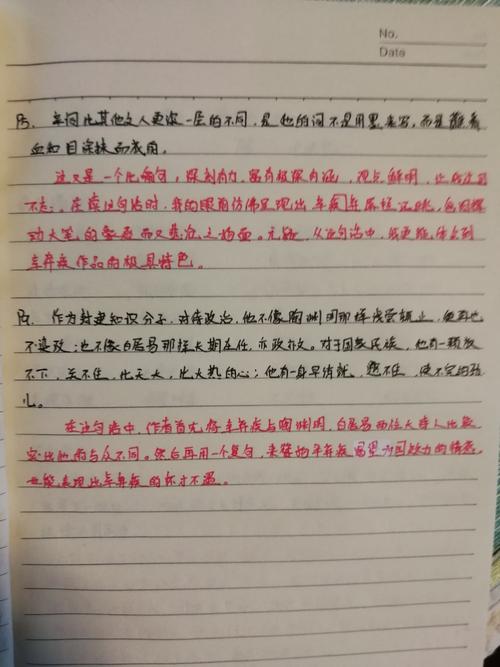 No.
Date
P5. 辛词比其他文人更深一层的不同,是他的词不是用墨来写,而是蘸着
血和泪涂抹而成的。
这又是一个比喻句,深刻有力,富有极深内涵,观点鲜明,让我注意到
不去。在读这句话时,我的眼前仿佛呈现出辛弃疾
动大笔的豪迈而又悲壮之场面。无疑,从这句话中,我更能体会到
辛弃疾作品的极具特色。
P6. 作为封建知识分子,对待政治,他不像陶渊明那样浅尝辄止,便再也
不染政;也不像白居易那样长期在任,亦政亦文。对于国家民族,他有一颗放
不下,关不住,比天大,比火热的心;他有一身早练就,憋不住,使不完的劲
儿。
在这句话中,作者首先将辛弃疾与陶渊明,白居易两位大诗人比较
突出他的与众不同。然后再用一个复句,来强调辛弃疾愿望为国效力的情感,
也能表现出辛弃疾的怀才不遇。